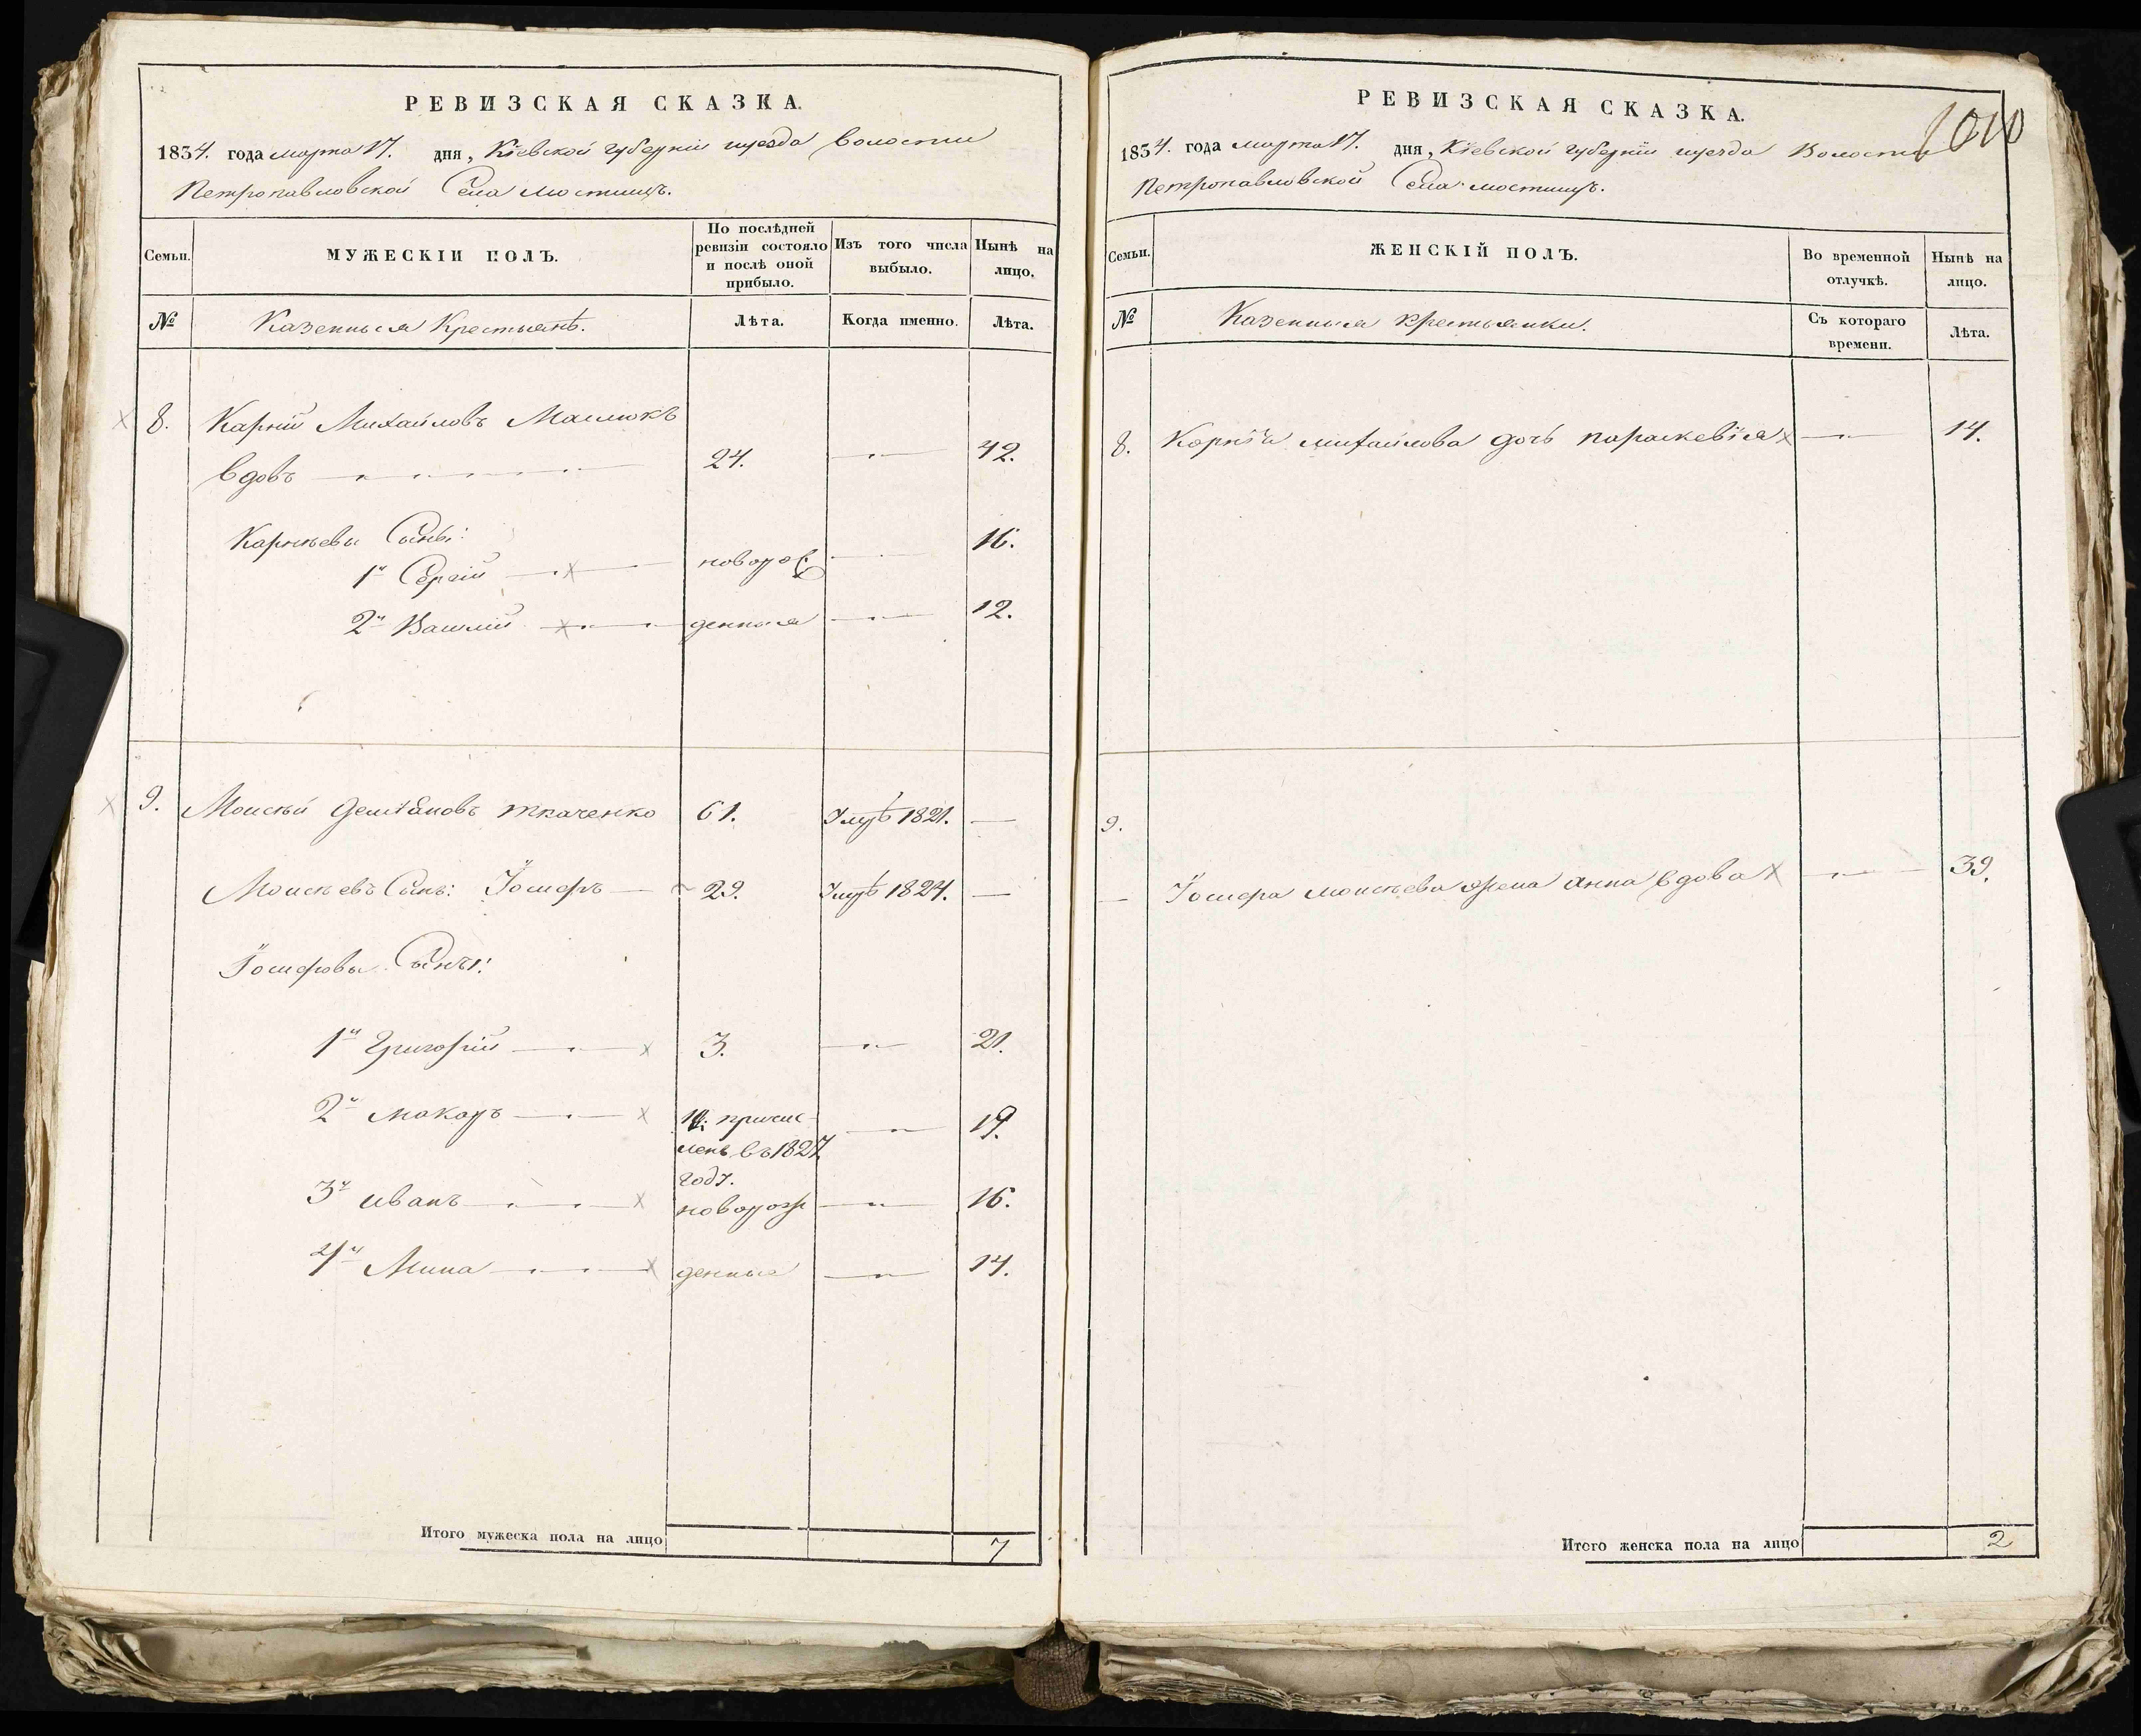 РЕВИЗСКАЯ СКАЗКА.
1834. года марта 17. дня, Кіевской губерніи уезда волости
Петропавловской Села мостищъ.
Семьи.
МУЖЕСКІЙ ПОЛЪ.
По послѣдней ревизіи состояло и послѣ оной прибыло.
Изъ того числа выбыло.
Нынѣ на лицо.
№
Казенныя Крестьянѣ.
Лѣта.
Когда именно.
Лѣта.
8. Карній Михайловъ Маслюкъ
вдовъ 24. 42.
Карнѣевы Сыны:
1й Сергій новорож 16.
2й Василій денныя 12.
9. Моисѣй демiановъ ткаченко 61. Умрѣ 1821. —
Моисѣевъ Сынъ: Іосифъ — 29. Умрѣ 1824. —
Іосифовы Сынъı:
1й Григорій 3. 21.
2й макаръ причис- 19.
ленъ въ 1827.
году.
3й иванъ новорож 16.
4й Мина денныя 14.
Итого мужеска пола на лицо 7
РЕВИЗСКАЯ СКАЗКА.
1010
1834. года марта 17. дня, Кіевской губерніи уезда Волости
Петропавловской Села мостищъ.
Семьи.
ЖЕНСКІЙ ПОЛЪ.
Во временной отлучкѣ.
Нынѣ на лицо.
№
Казенныя крестьянки.
Съ котораго времени.
Лѣта.
8. Корнія михайлова дочь параскевія 14.
9.
— Іосифа моисѣева жена анна вдова 39.
Итого женска пола на лицо 2